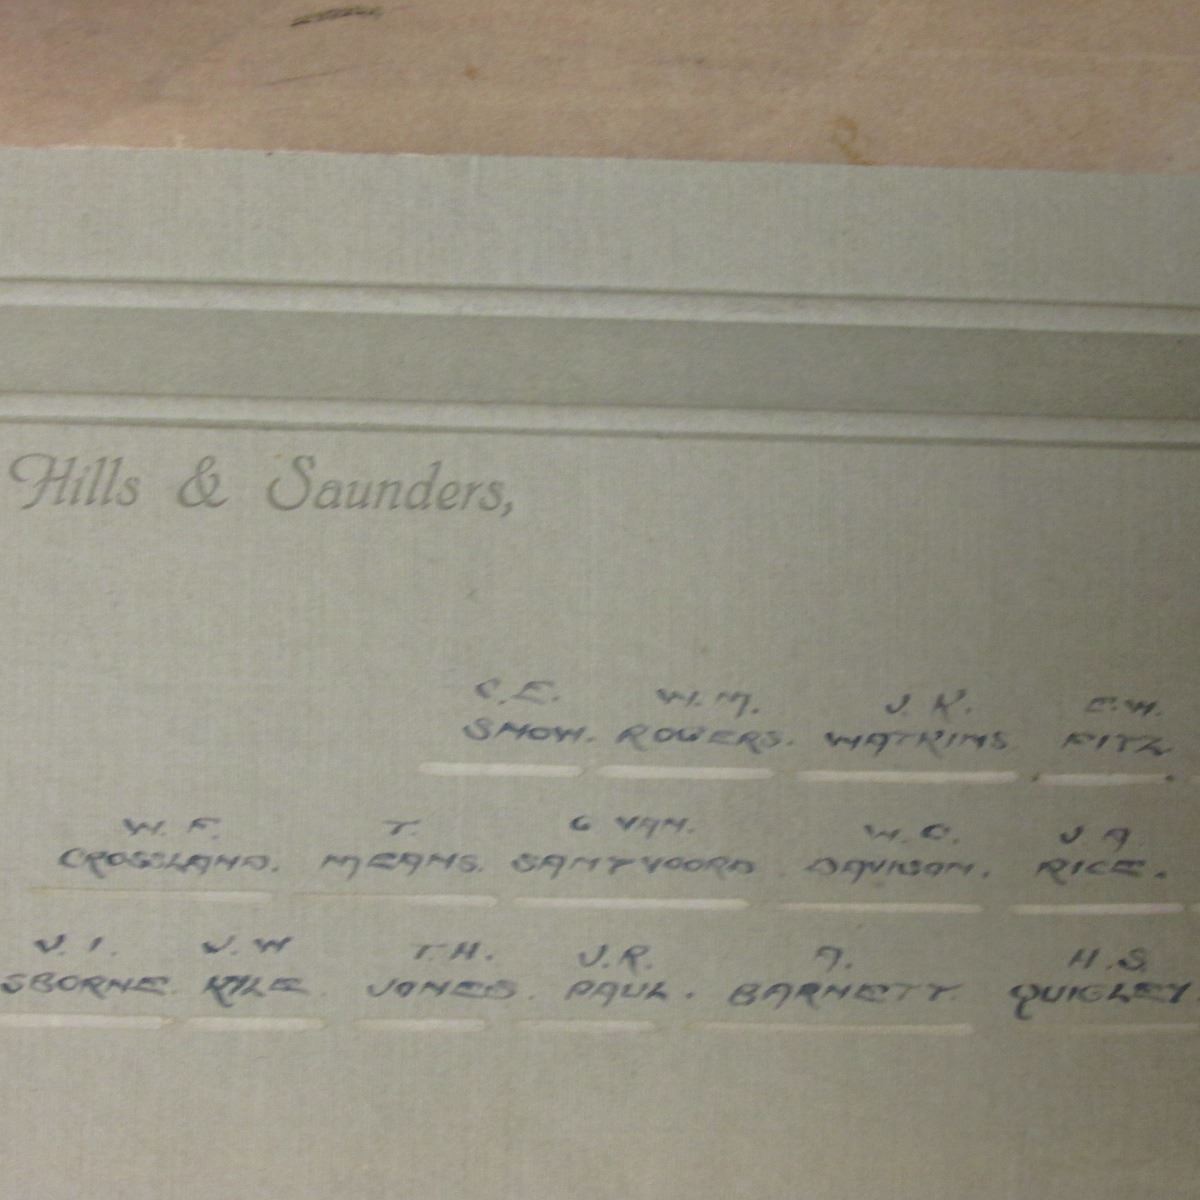 Hills & Saunders,
C.E. W.M. J.K. E.W.
SNOW. ROGERS. WATKINS FITZ
W. F. T. G VAN. W.C. J A
CROSSLAND. MEANS. SANTVOORD DAVISON. RICE.
J.I. J.W T.H. J.R. A. H.S
SBORNE. KYLE. JONES. PAUL. BARNETT. QUIGLEY